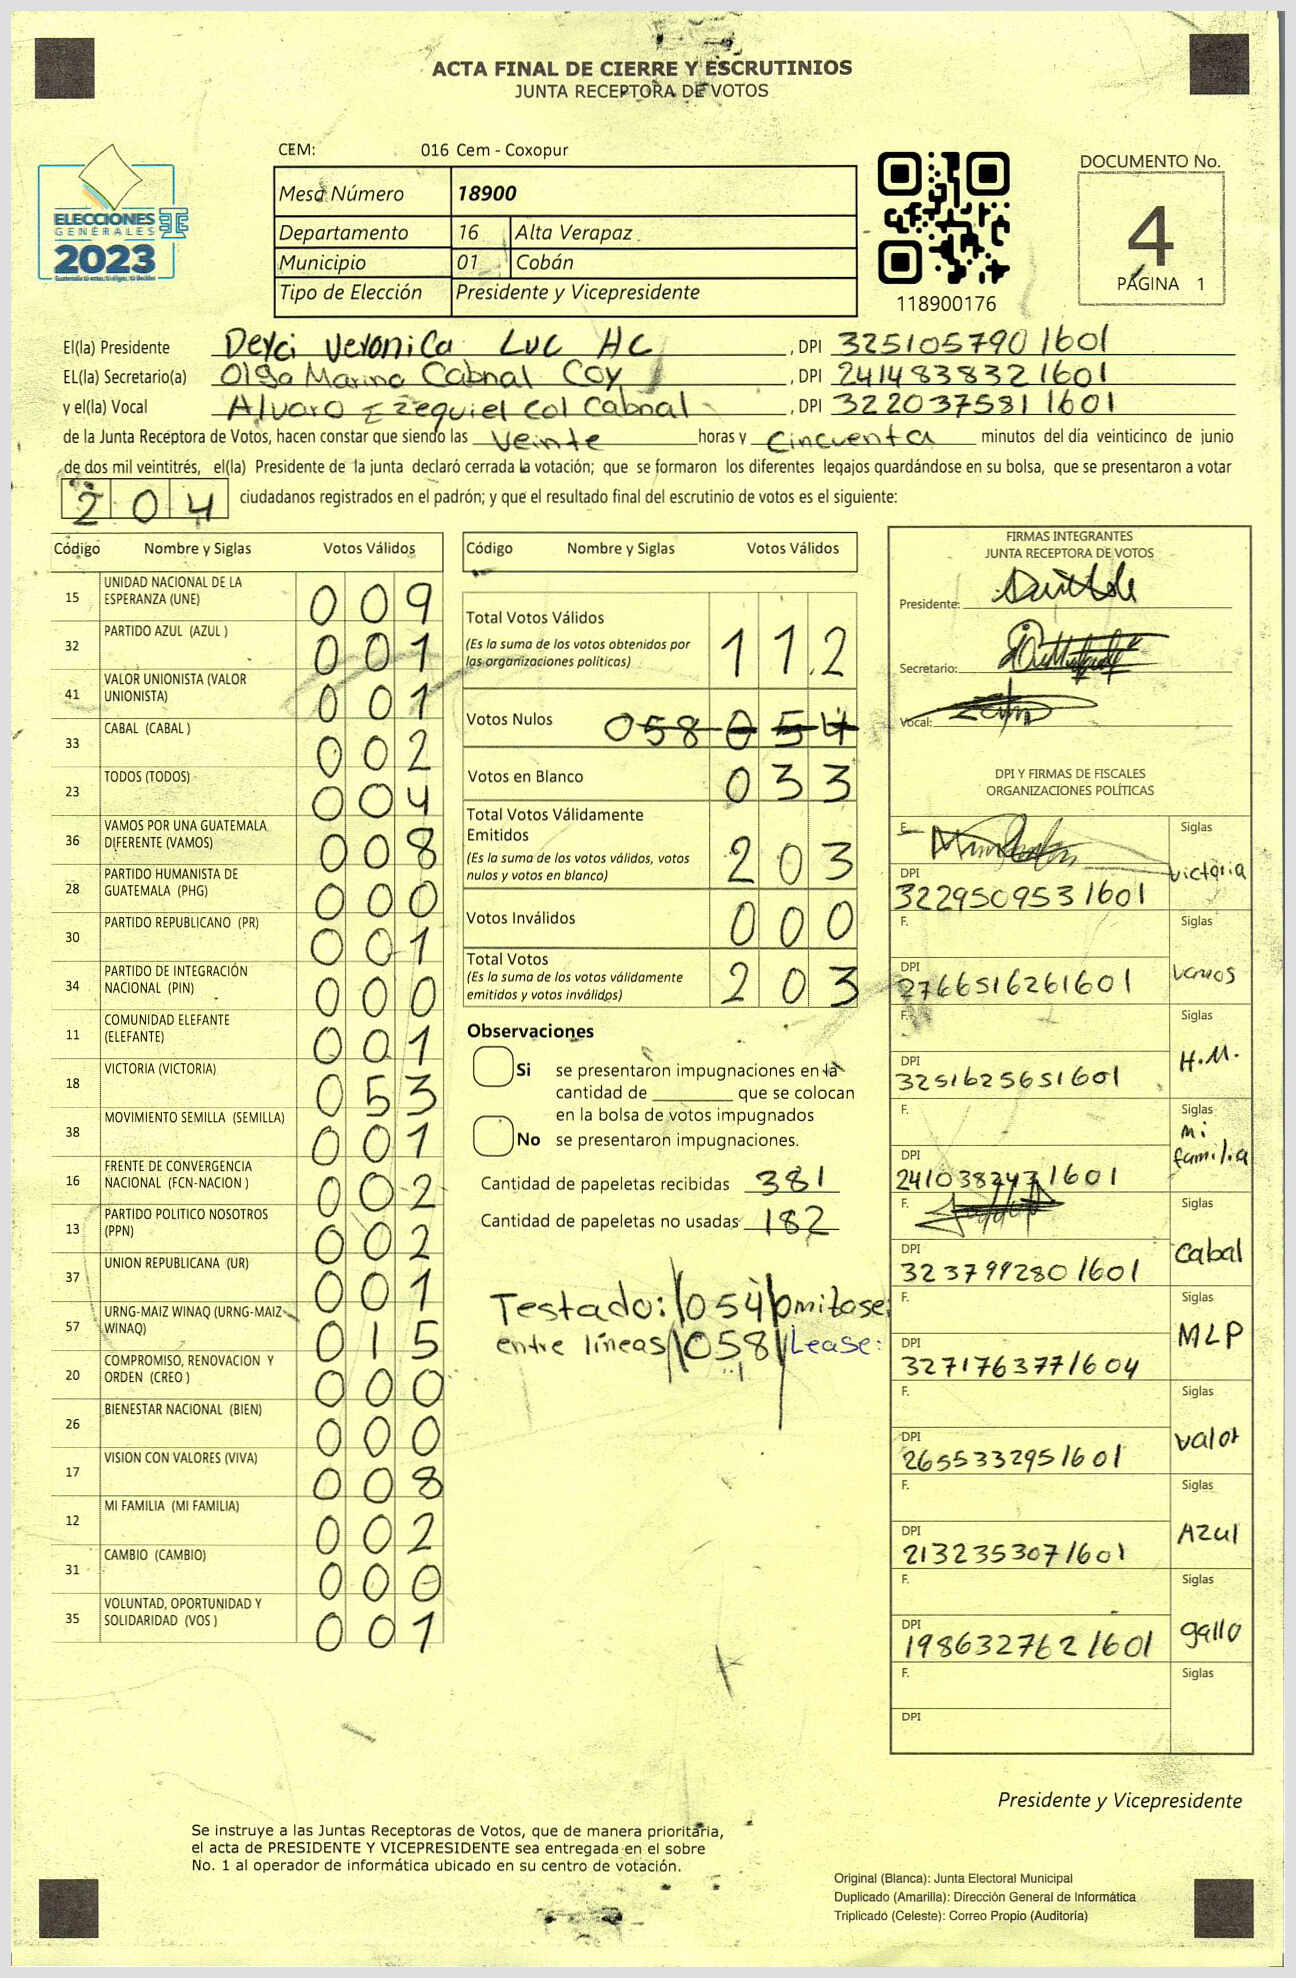 ACTA FINAL DE CIERRE Y ESCRUTINIOS
JUNTA RECEPTORA DE VOTOS
CEM: 016 Cem - Coxopur
Mesa Número 18900
Departamento 16 Alta Verapaz
Municipio 01 Cobán
Tipo de Elección Presidente y Vicepresidente
ELECCIONES
GENERALES
2023
118900176
DOCUMENTO No.
4
PÁGINA 1
El(la) Presidente Deyci Veronica Luc Ac, DPI 3251057901601
EL(la) Secretario(a) Olga Marina Cabnal Coy, DPI 2414838321601
y el(la) Vocal Alvaro Ezequiel Col Cabnal, DPI 3220375811601
de la Junta Receptora de Votos, hacen constar que siendo las veinte horas y cincuenta minutos del día veinticinco de junio
de dos mil veintitrés, el(la) Presidente de la junta declaró cerrada la votación; que se formaron los diferentes legajos quardándose en su bolsa, que se presentaron a votar
204 ciudadanos registrados en el padrón; y que el resultado final del escrutinio de votos es el siguiente:
Código Nombre y Siglas Votos Válidos
15 UNIDAD NACIONAL DE LA ESPERANZA (UNE) 009
32 PARTIDO AZUL (AZUL ) 001
41 VALOR UNIONISTA (VALOR UNIONISTA) 001
33 CABAL (CABAL ) 002
23 TODOS (TODOS) 004
36 VAMOS POR UNA GUATEMALA DIFERENTE (VAMOS) 008
28 PARTIDO HUMANISTA DE GUATEMALA (PHG) 000
30 PARTIDO REPUBLICANO (PR) 001
34 PARTIDO DE INTEGRACIÓN NACIONAL (PIN) 000
11 COMUNIDAD ELEFANTE (ELEFANTE) 001
18 VICTORIA (VICTORIA) 053
38 MOVIMIENTO SEMILLA (SEMILLA) 001
16 FRENTE DE CONVERGENCIA NACIONAL (FCN-NACION ) 002
13 PARTIDO POLITICO NOSOTROS (PPN) 002
37 UNION REPUBLICANA (UR) 001
57 URNG-MAIZ WINAQ (URNG-MAIZ WINAQ) 015
20 COMPROMISO, RENOVACION Y ORDEN (CREO ) 000
26 BIENESTAR NACIONAL (BIEN) 000
17 VISION CON VALORES (VIVA) 008
12 MI FAMILIA (MI FAMILIA) 002
31 CAMBIO (CAMBIO) 000
35 VOLUNTAD, OPORTUNIDAD Y SOLIDARIDAD (VOS ) 001
Código Nombre y Siglas Votos Válidos
Total Votos Válidos 112
(Es la suma de los votos obtenidos por
las organizaciones políticas)
Votos Nulos 058 054
Votos en Blanco 033
Total Votos Válidamente
Emitidos 203
(Es la suma de los votos válidos, votos
nulos y votos en blanco)
Votos Inválidos 000
Total Votos 203
(Es la suma de los votos válidamente
emitidos y votos inválidos)
Observaciones
Si se presentaron impugnaciones en la
cantidad de ________ que se colocan
en la bolsa de votos impugnados
No se presentaron impugnaciones.
Cantidad de papeletas recibidas 381
Cantidad de papeletas no usadas 182
Testado: |054| omitose:
entre líneas |058| Lease:
FIRMAS INTEGRANTES
JUNTA RECEPTORA DE VOTOS
Presidente:
Secretario:
Vocal:
DPI Y FIRMAS DE FISCALES
ORGANIZACIONES POLÍTICAS
F. Siglas
DPI victoria
3229509531601
F. Siglas
DPI vamos
2766516261601
F. Siglas
DPI H.M.
3251625651601
F. Siglas
mi
DPI familia
2410382431601
F. Siglas
DPI Cabal
3237992801601
F. Siglas
DPI MLP
3271763771604
F. Siglas
DPI valor
2655332951601
F. Siglas
DPI Azul
2132353071601
F. Siglas
DPI gallo
1986327621601
F. Siglas
DPI
Presidente y Vicepresidente
Se instruye a las Juntas Receptoras de Votos, que de manera prioritaria,
el acta de PRESIDENTE Y VICEPRESIDENTE sea entregada en el sobre
No. 1 al operador de informática ubicado en su centro de votación.
Original (Blanca): Junta Electoral Municipal
Duplicado (Amarilla): Dirección General de Informática
Triplicado (Celeste): Correo Propio (Auditoría)